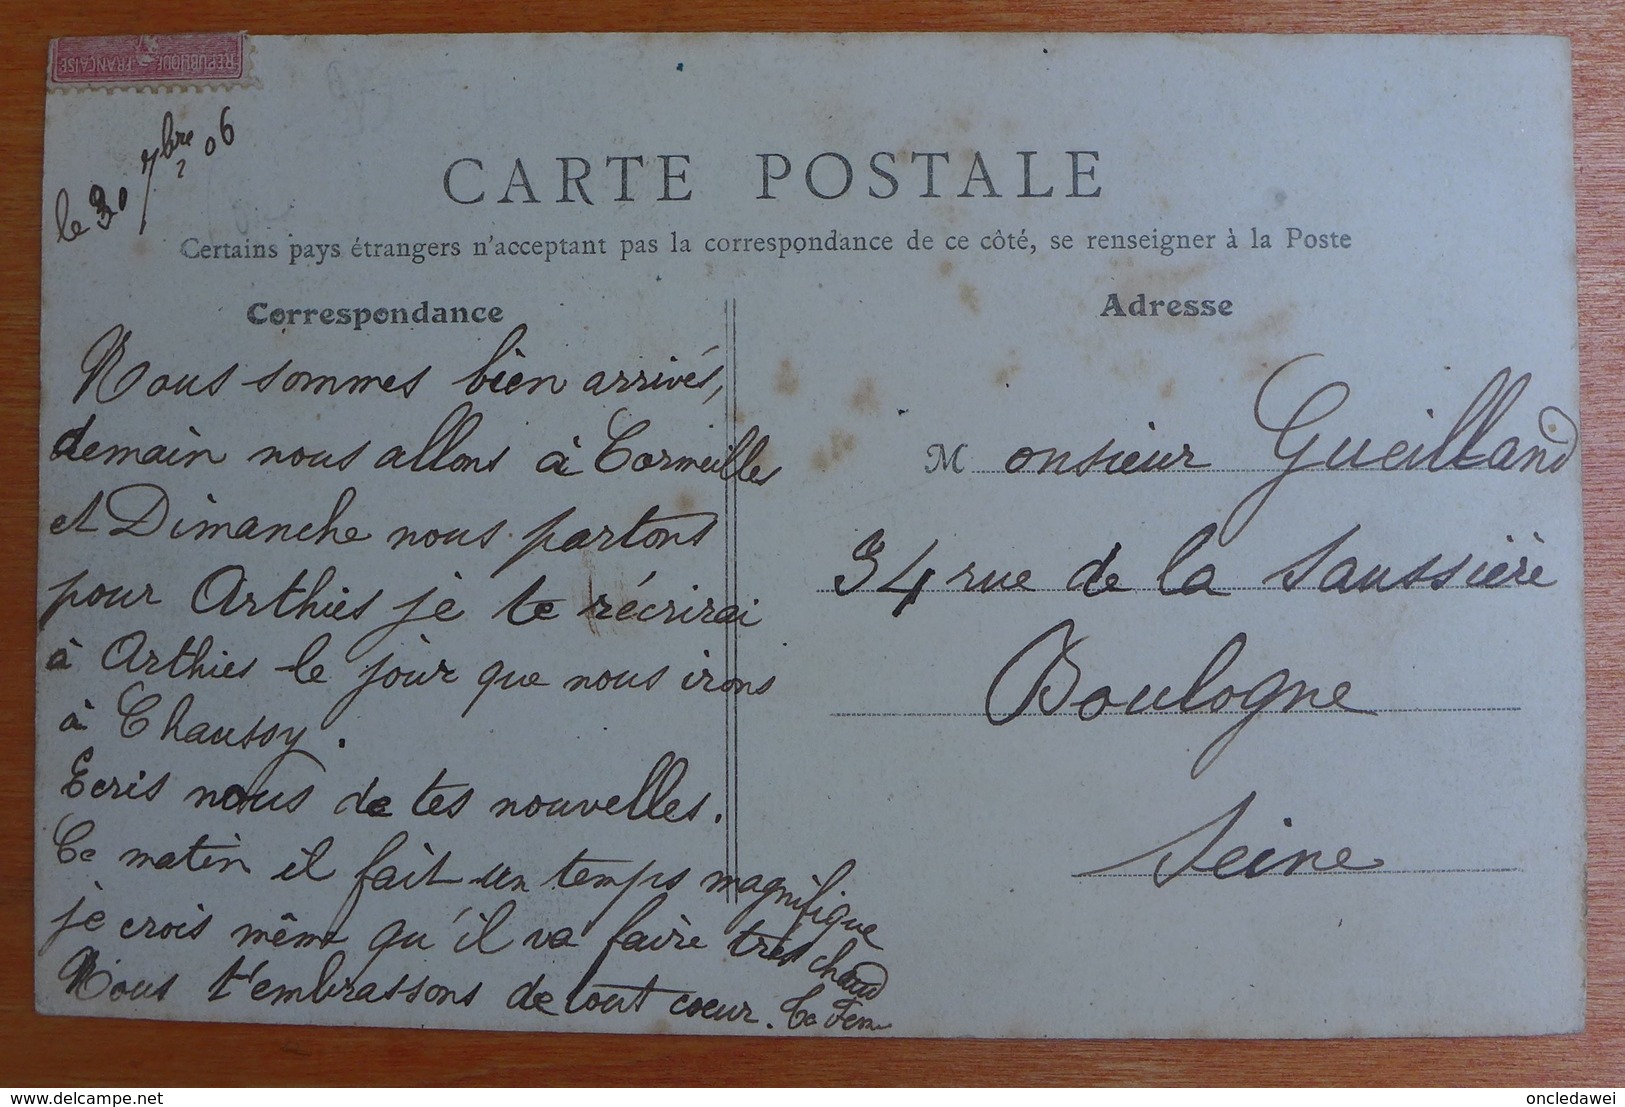 REPUBLIQUE FRANÇAISE
le 30 7bre 06
CARTE POSTALE
Certains pays étrangers n'acceptant pas la correspondance de ce côté, se renseigner à la Poste
Correspondance
Nous sommes bien arrivés,
demain nous allons à Cormeilles
et Dimanche nous partons
pour Arthies je te récrirai
à Arthies le jour que nous irons
à Chaussy.
Ecris nous de tes nouvelles.
Ce matin il fait un temps magnifique
je crois même qu'il va faire très chaud
Nous t'embrassons de tout coeur.
Adresse
Monsieur Gueilland
34 rue de la Saussière
Boulogne
Seine
delcampe.net
oncledawei